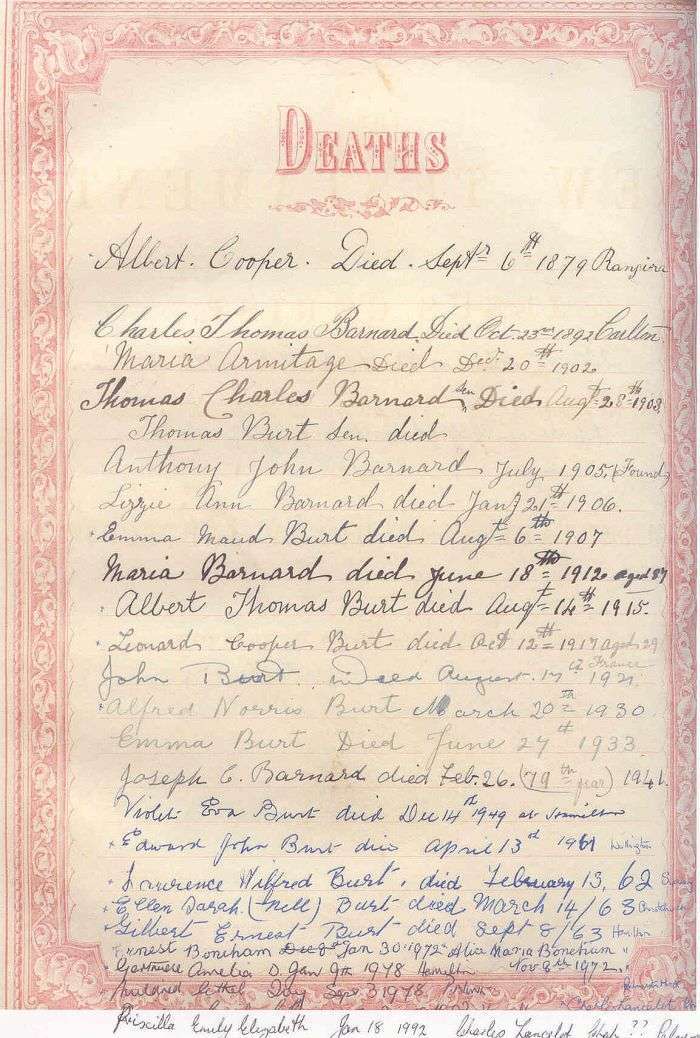 DEATHS
Albert. Cooper. Died. Septr 6th 1879 Rangiora
Charles Thomas Barnard. Died Oct. 23rd 1892 Carlton
Maria Armitage Died Decr 20th 1902
Thomas Charles Barnard Sen Died Augt 28th 1903
Thomas Burt Sen. died
Anthony John Barnard July 1905, (Found)
Lizzie Ann Barnard died Jany 21st 1906.
Emma Maud Burt died Augt 6th 1907
Maria Barnard died June 18th 1912 aged 87
Albert Thomas Burt died Augt 14th 1915.
Leonard Cooper Burt died Oct 12th 1917 aged 29
France
John Burt Died August. 17th 1921.
Alfred Norris Burt March 20th 1930
Emma Burt Died June 27th 1933
Joseph C. Barnard died Feb. 26. (79th year) 1941.
Violet Eva Burt died Dec 14th 1949 at Hamilton
Edward John Burt died April 13rd 1961 Wellington
Lawrence Wilfred Burt, died February 13, 62
Ellen Sarah. (Nell) Burt died March 14/63
Gilbert Ernest Burt died Sept 8/63 Hamilton
Ernest Boneham Jan 30 1972 Alice Maria Boneham "
Gertrude Amelia D Jan 9th 1978 Hamilton Nov 8th 1972
Mildred Ethel Day Sept 3 1978
Charles Lancelot
Priscilla Emily Elizabeth Jan 18 1992 Charles Lancelot ??